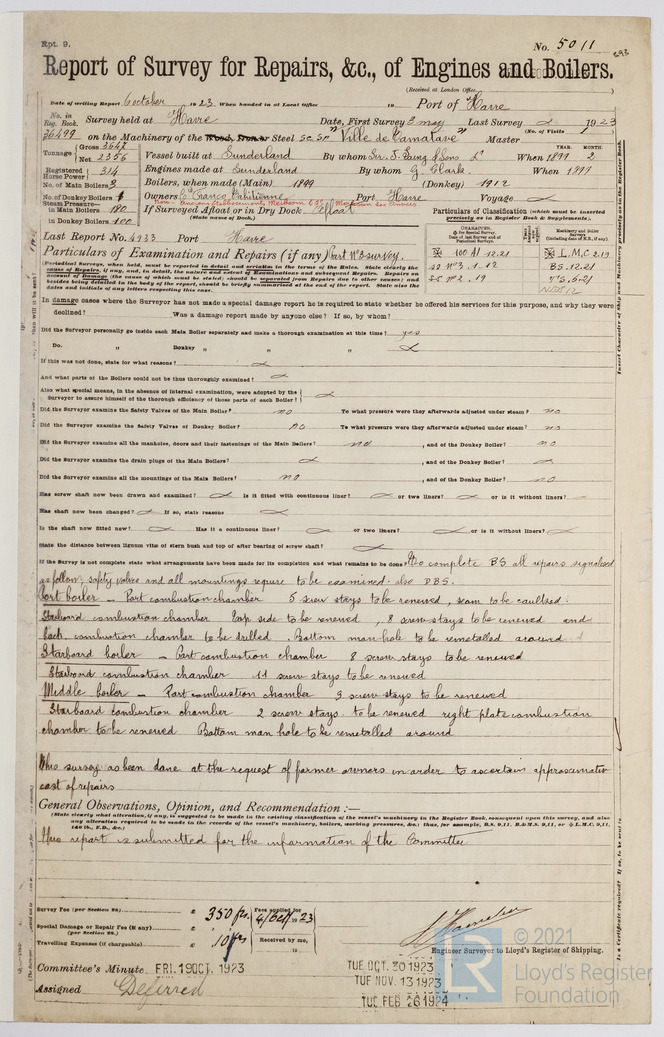 Rpt. 9.
No. 5011
Report of Survey for Repairs, &c., of Engines and Boilers.
(Received at London Office
Date of writing Report 6 october 1923 When handed in at Local Office 19 Port of Havre
No. in Reg. Book. Survey held at Havre Date, First Survey 3 may Last Survey 1923
36499 on the Machinery of the Wood, Iron or Steel Sc Sr "Ville de Tamatave" Master (No. of Visits 1
Tonnage Gross 3647 Net 2356
Vessel built at Sunderland By whom Sir J. Laing & Sons Ld When 1899 2
Registered Horse Power 314
Engines made at Sunderland By whom G. Clark When 1899
No. of Main Boilers 3
Boilers, when made (Main) 1899 (Donkey) 1912
No. of Donkey Boilers 1
Owners Port Havre Voyage
Steam Pressure— in Main Boilers 180
If Surveyed Afloat or in Dry Dock Afloat
(State name of Dock.)
in Donkey Boilers 100
Last Report No. 4933 Port Havre
Particulars of Classification (which must be inserted precisely as in Register Book & Supplements).
100 A1 12.21
L.M.C 2.19
BS. 12.21
Particulars of Examination and Repairs (if any) Part No 3 survey.
In damage cases where the Surveyor has not made a special damage report he is required to state whether he offered his services for this purpose, and why they were
declined? Was a damage report made by anyone else? If so, by whom?
Did the Surveyor personally go inside each Main Boiler separately and make a thorough examination at this time? yes
Do. " Donkey " " "
If this was not done, state for what reasons?
And what parts of the Boilers could not be thoroughly examined?
Also what special means, in the absence of internal examination, were adopted by the
Surveyor to assure himself of the thorough efficiency of those parts of each Boiler?
Did the Surveyor examine the Safety Valves of the Main Boiler? no To what pressure were they afterwards adjusted under steam? no
Did the Surveyor examine the Safety Valves of Donkey Boiler? no To what pressure were they afterwards adjusted under steam? no
Did the Surveyor examine all the manholes, doors and their fastenings of the Main Boilers? no , and of the Donkey Boiler? no
Did the Surveyor examine the drain plugs of the Main Boilers? , and of the Donkey Boiler?
Did the Surveyor examine all the mountings of the Main Boilers? no , and of the Donkey Boiler? no
Has screw shaft now been drawn and examined? Is it fitted with continuous liner? or two liners? or is it without liners?
Has shaft now been changed? If so, state reasons
Is the shaft now fitted new? Has it a continuous liner? or two liners? or is it without liners?
State the distance between lignum vitæ of stern bush and top of after bearing of screw shaft?
If the Survey is not complete state what arrangements have been made for its completion and what remains to be done? To complete BS all repairs signalised
as follow, safety valve and all mountings require to be examined. also DBS.
Port boiler — Port combustion chamber 5 screw stays to be renewed, seam to be caulked.
Starboard combustion chamber Lap side to be renewed, 8 screw stays to be renewed and
back combustion chamber to be drilled. Bottom man hole to be remetalled around
Starboard boiler — Port combustion chamber 8 screw stays to be renewed
Starboard combustion chamber 11 screw stays to be renewed
Middle boiler — Port combustion chamber 3 screw stays to be renewed
Starboard combustion chamber 2 screw stays to be renewed right plate combustion
chamber to be renewed Bottom man hole to be remetalled around
This survey as been done at the request of former owners in order to ascertain approximative
cost of repairs
General Observations, Opinion, and Recommendation:—
(State clearly what alteration, if any, is suggested to be made in the existing classification of the vessel's machinery in the Register Book, consequent upon this survey, and also
any alteration required to be made in the records of the vessel's machinery, boilers, working pressures, &c.: thus, for example, B.S. 9,11, B.&M.S. 9,11, or L.M.C. 9,11,
140 lb., F.D., &c.)
This report is submitted for the information of the Committee
Survey Fee (per Section 28) £ 350 frs. Fees applied for 4/Oct 1923
Special Damage or Repair Fee (if any) £
(per Section 28.)
Travelling Expenses (if chargeable) £ 10 frs Received by me, 19
Engineer Surveyor to Lloyd's Register of Shipping.
Committee's Minute FRI. 19 OCT. 1923
TUE OCT. 30 1923
TUE NOV. 13 1923
TUE FEB 26 1924
Assigned Deferred
© 2021
Lloyd's Register
Foundation
LR